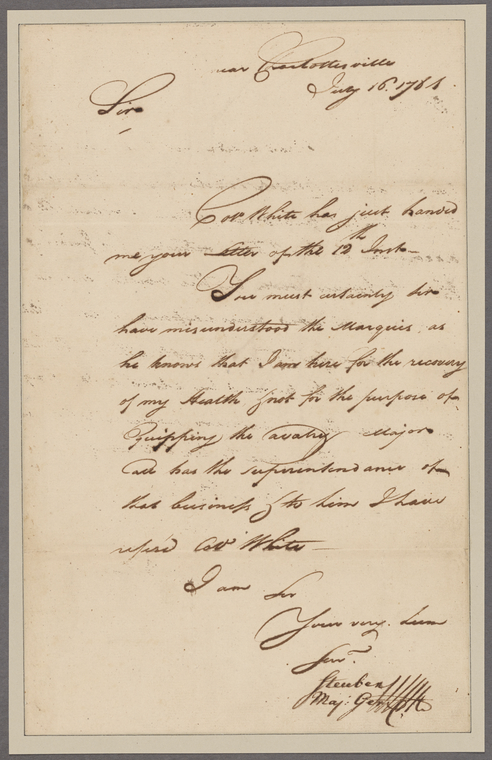 near Charlottesville
July 16. 1781
Sir
Coll White has just handed
me your Letter of the 12th Inst
You must certainly Sir
have misunderstood the Marquis, as
he knows that I am here for the recovery
of my Health & not for the purpose of
Equipping the Cavalry Major
Call has the superintendance of
that business & to him I have
refer'd Coll White
I am Sir
Your very hum
Servt
Steuben
Maj: Genl